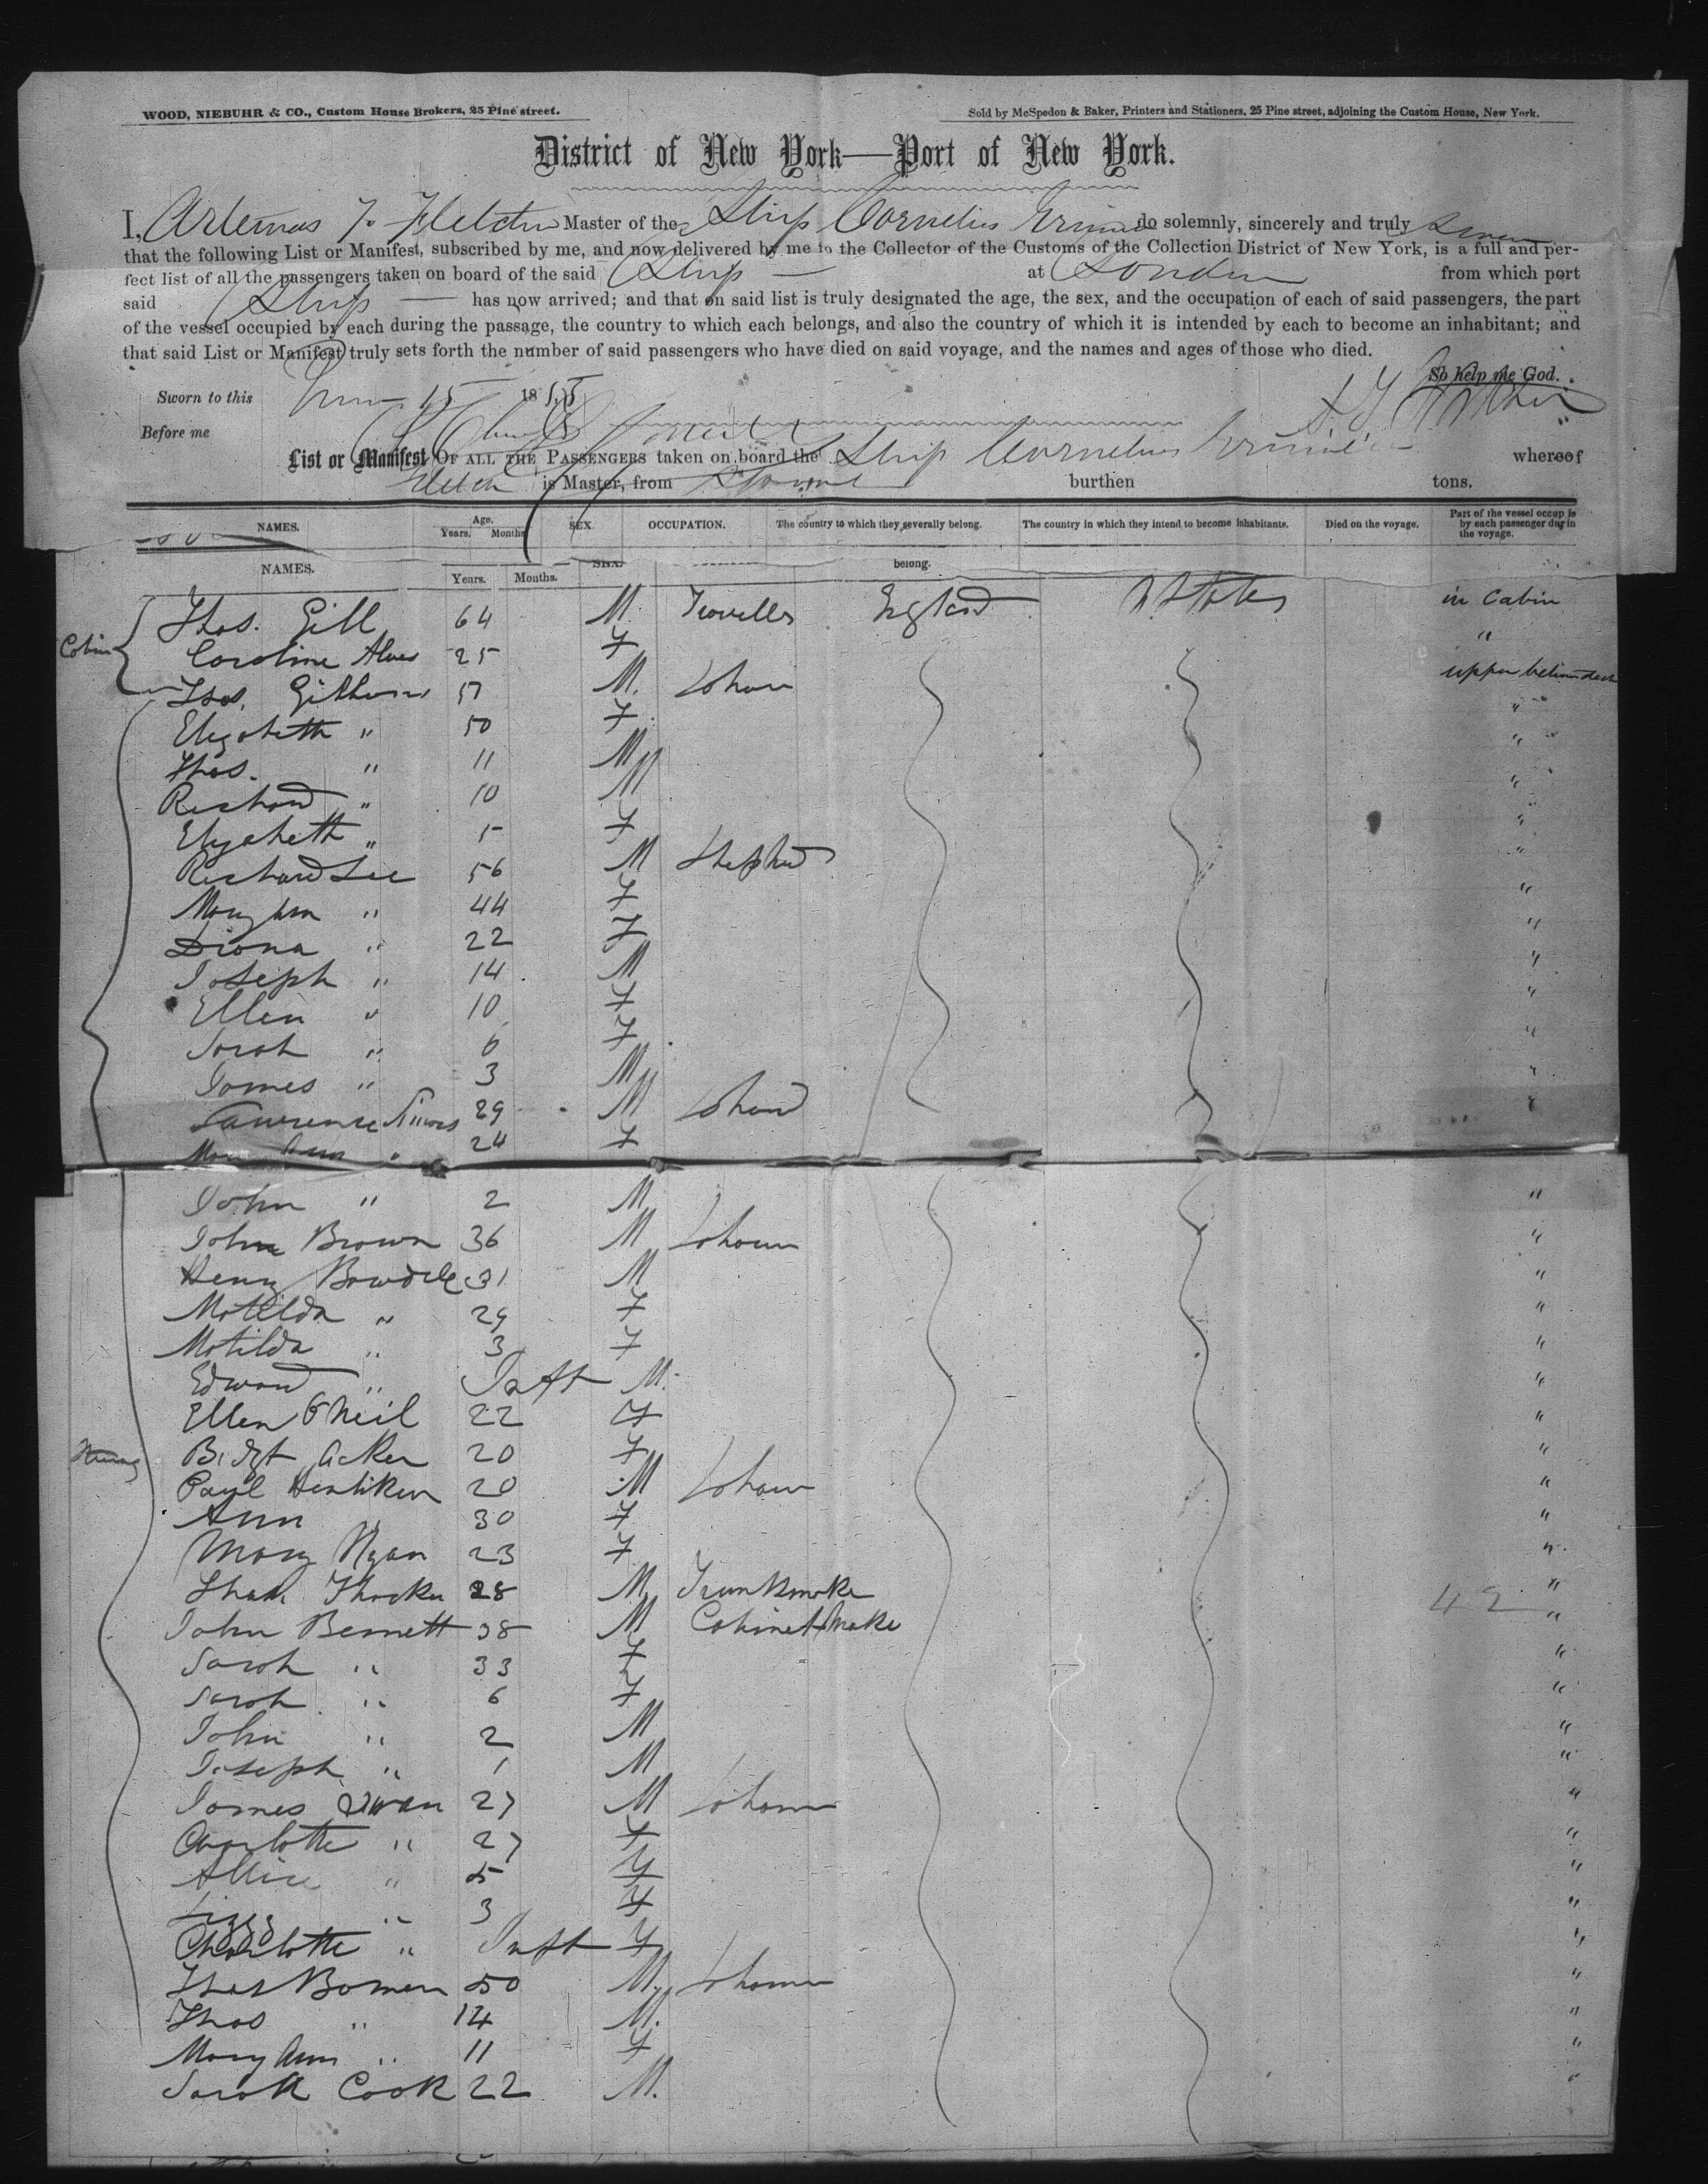 WOOD, NIEBUHR & CO., Custom House Brokers, 25 Pine street.
Sold by McSpedon & Baker, Printers and Stationers, 25 Pine street, adjoining the Custom House, New York.
District of New York—Port of New York.
I, Artemas T. Fletcher Master of the Ship Cornelius Grinnell do solemnly, sincerely and truly swear
that the following List or Manifest, subscribed by me, and now delivered by me to the Collector of the Customs of the Collection District of New York, is a full and per-
fect list of all the passengers taken on board of the said Ship — at London from which port
said Ship — has now arrived; and that on said list is truly designated the age, the sex, and the occupation of each of said passengers, the part
of the vessel occupied by each during the passage, the country to which each belongs, and also the country of which it is intended by each to become an inhabitant; and
that said List or Manifest truly sets forth the number of said passengers who have died on said voyage, and the names and ages of those who died.
So help me God.
Sworn to this 15 1855
A T Fletcher
Before me
List or Manifest OF ALL THE PASSENGERS taken on board the Ship Cornelius Grinnell whereof
is Master, from burthen tons.
NAMES. Age. Years. Months SEX. OCCUPATION. The country to which they severally belong. The country in which they intend to become inhabitants. Died on the voyage. Part of the vessel occup ie by each passenger dur in the voyage.
NAMES. Years. Months. SEX. belong.
Cabin
Thos. Gill 64 M. Traveller England U States in Cabin
Caroline Alves 25 F "
Thos. 51 M. Labour upper between deck
Elizabeth " 50 F "
Thos. " 11 M "
Richard " 10 M "
Elizabeth " 5 F "
Richard Lee 56 M Shepherd "
Mary Ann " 44 F "
Diana " 22 F "
Joseph " 14 M "
Ellen " 10 F "
Sarah " 6 F "
James " 3 M "
Lawrence 29 M Labour "
Mary Ann " 24 F
John " 2 M "
John Brown 36 M Labour "
Henry Bowdell 31 M "
Matilda " 29 F "
Matilda " 3 F "
Edward " Inft M. "
Ellen O Neil 22 F "
Bidgt Acker 20 F "
Paul 20 M Labour "
Ann " 30 F "
Mary Ryan 23 F "
28 M Trunkmaker "
42
John Bennett 38 M Cabinet Maker "
Sarah " 33 F "
Sarah " 6 F "
John " 2 M "
Joseph " 1 M "
James Swan 27 M Labour "
Charlotte " 27 F "
Allice " 5 F "
Lizzy " 3 F "
Charlotte " Inft F "
Thos Bowen 50 M. Labour "
Thos " 14 M. "
Mary Ann " 11 F "
Sarah Cook 22 M. "